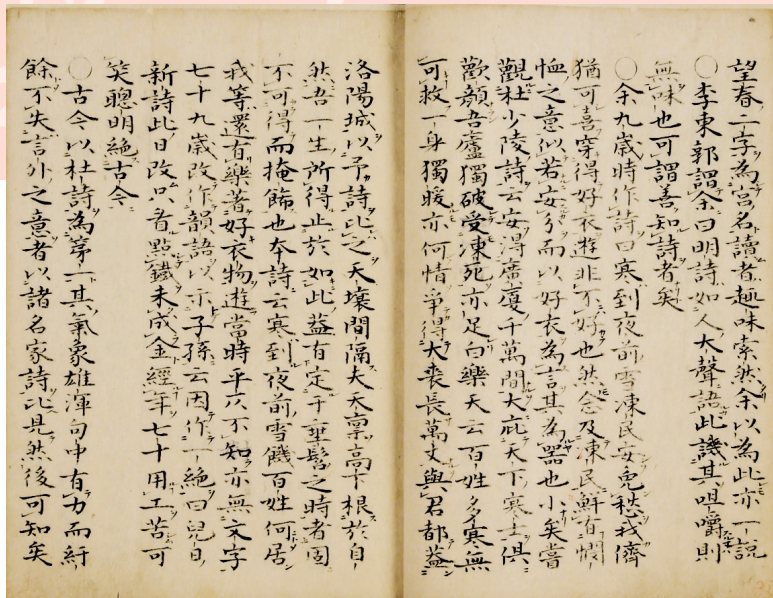 望春二字為宮名讀者趣味索然余以為此亦一說
○李東郭謂余曰明詩如人大聲語此譏其咀嚼則
無味也可謂善知詩者矣
○余九歲時作詩曰寒到夜前雪凍民安免愁我儕
猶可喜穿得好衣遊非不好也然念及凍民鮮有憫
恤之意似若安分而以好衣為言其為器也小矣嘗
觀杜少陵詩云安得廣廈千萬間大庇天下寒士俱
歡顏吾廬獨破受凍死亦足白樂天云百姓多寒無
可救一身獨暖亦何情爭得大裘長萬丈與君都蓋
洛陽城以予詩比之天壤間隔夫天稟高下根於自
然吾一生所得止於如此益有定于垂髫之時者固
不可得而掩飾也本詩云寒到夜前雪饑百姓何居
我等還有樂著好衣物遊當時平仄不知亦無文字
七十九歲改作韻語以示子孫云因作一絕曰兒自
新詩此日改只看點鐵未成金經年七十用工苦可
笑聰明絕古今
○古今以杜詩為第一其氣象雄渾句中有力而紆
餘不失言外之意者以諸名家詩比見然後可知矣